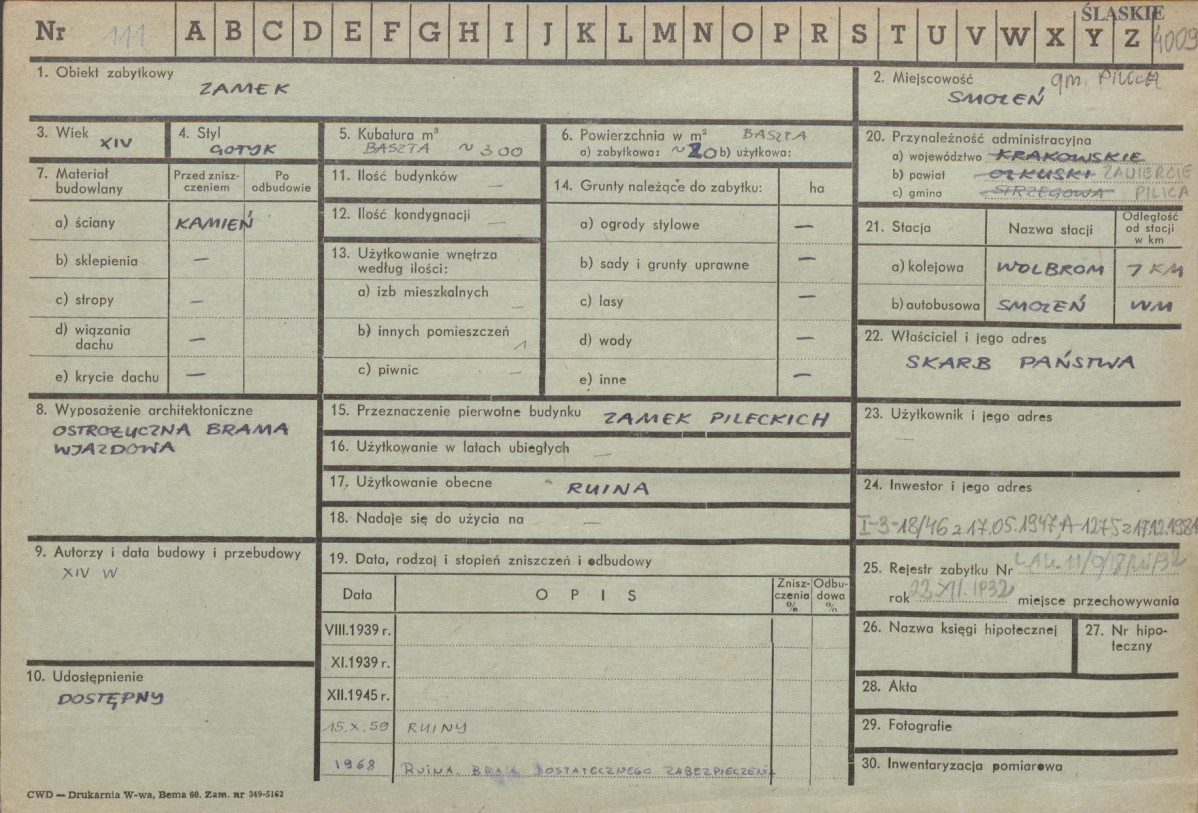 Nr 111 A B C D E F G H I J K L M N O P R S T U V W X Y Z ŚLĄSKIE 4009
1. Obiekt zabytkowy
ZAMEK
2. Miejscowość gm. PILICA
SMOLEŃ
3. Wiek
XIV
4. Styl
GOTYK
5. Kubatura m³
BASZTA ~ 300
6. Powierzchnia w m² BASZTA
a) zabytkowa: ~20 b) użytkowa:
7. Materiał budowlany
Przed zniszczeniem
Po odbudowie
a) ściany KAMIEŃ
b) sklepienia —
c) stropy —
d) wiązania dachu —
e) krycie dachu —
8. Wyposażenie architektoniczne
OSTROŁUCZNA BRAMA
WJAZDOWA
9. Autorzy i data budowy i przebudowy
XIV W
10. Udostępnienie
DOSTĘPNY
11. Ilość budynków —
12. Ilość kondygnacji —
13. Użytkowanie wnętrza
według ilości:
a) izb mieszkalnych —
b) innych pomieszczeń 1
c) piwnic —
14. Grunty należące do zabytku: ha
a) ogrody stylowe —
b) sady i grunty uprawne —
c) lasy —
d) wody —
e) inne —
15. Przeznaczenie pierwotne budynku ZAMEK PILECKICH
16. Użytkowanie w latach ubiegłych —
17. Użytkowanie obecne RUINA
18. Nadaje się do użycia na —
19. Data, rodzaj i stopień zniszczeń i odbudowy
Data
OPIS
Zniszczenia %
Odbudowa %
VIII.1939 r.
XI.1939 r.
XII.1945 r.
15.X.59 RUINY
1968 RUINA. BRAK DOSTATECZNEGO ZABEZPIECZENIA
20. Przynależność administracyjna
a) województwo KRAKOWSKIE
b) powiat OLKUSKI ZAWIERCIE
c) gmina STRZEGOWA PILICA
21. Stacja
Nazwa stacji
Odległość od stacji w km
a) kolejowa WOLBROM 7 KM
b) autobusowa SMOLEŃ WM
22. Właściciel i jego adres
SKARB PAŃSTWA
23. Użytkownik i jego adres
—
24. Inwestor i jego adres
I-3-18/46 z 17.05.1947, A-1275 z 17.12.1981
25. Rejestr zabytku Nr
rok 22.XII.1932 miejsce przechowywania
26. Nazwa księgi hipotecznej
27. Nr hipoteczny
28. Akta
29. Fotografie
30. Inwentaryzacja pomiarowa
CWD — Drukarnia W-wa, Bema 60. Zam. nr 349-5162